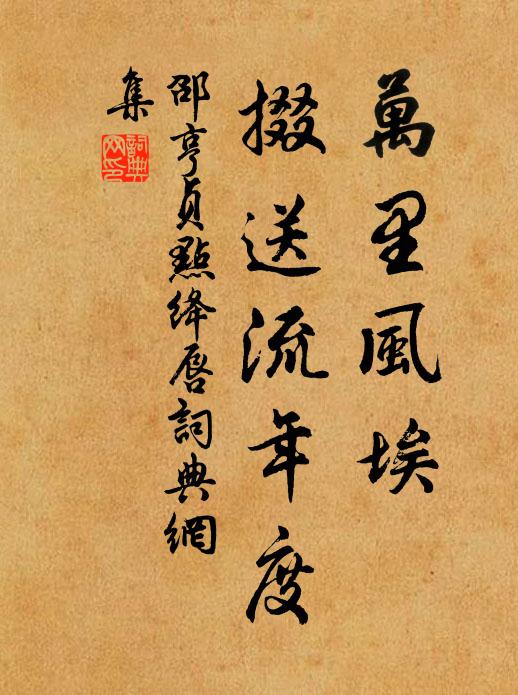 萬里風埃
掇送流年度
邵亨貞點絳唇詞典網
集
詞典
网印